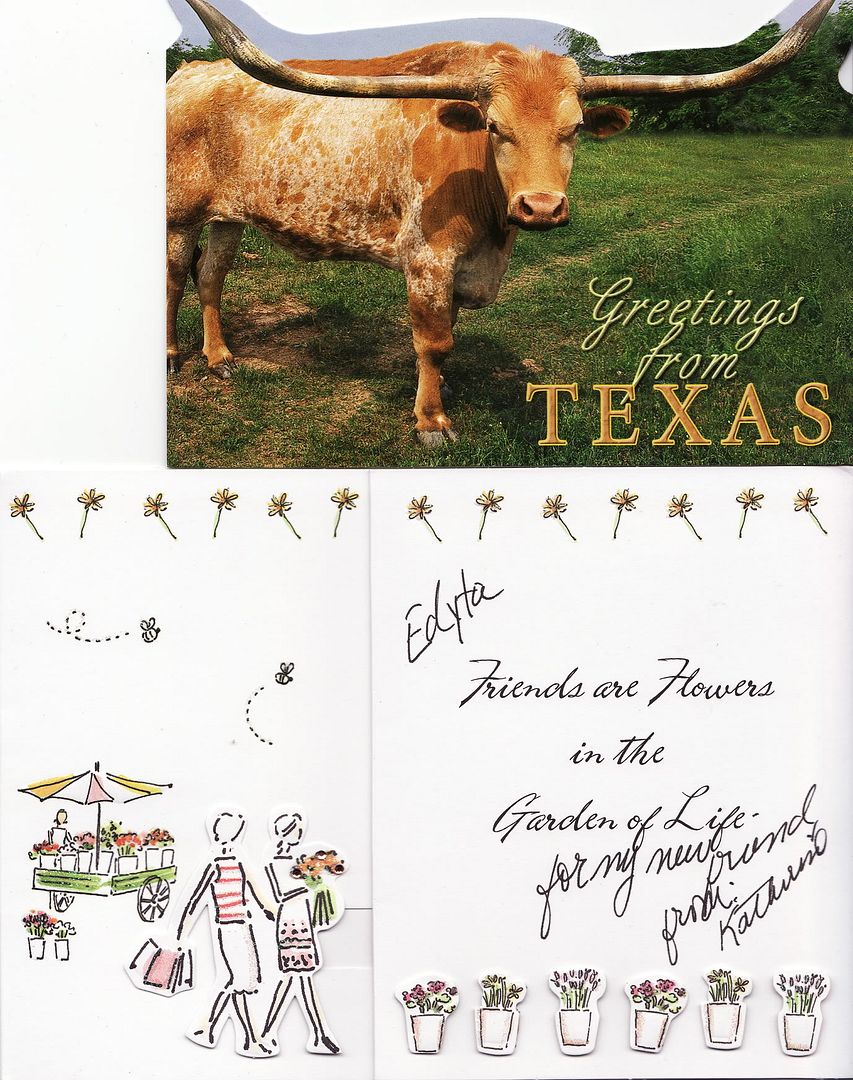 Greetings
from
TEXAS
Edyta
Friends are Flowers
in the
Garden of Life-
for my new friend
from:
Katherine